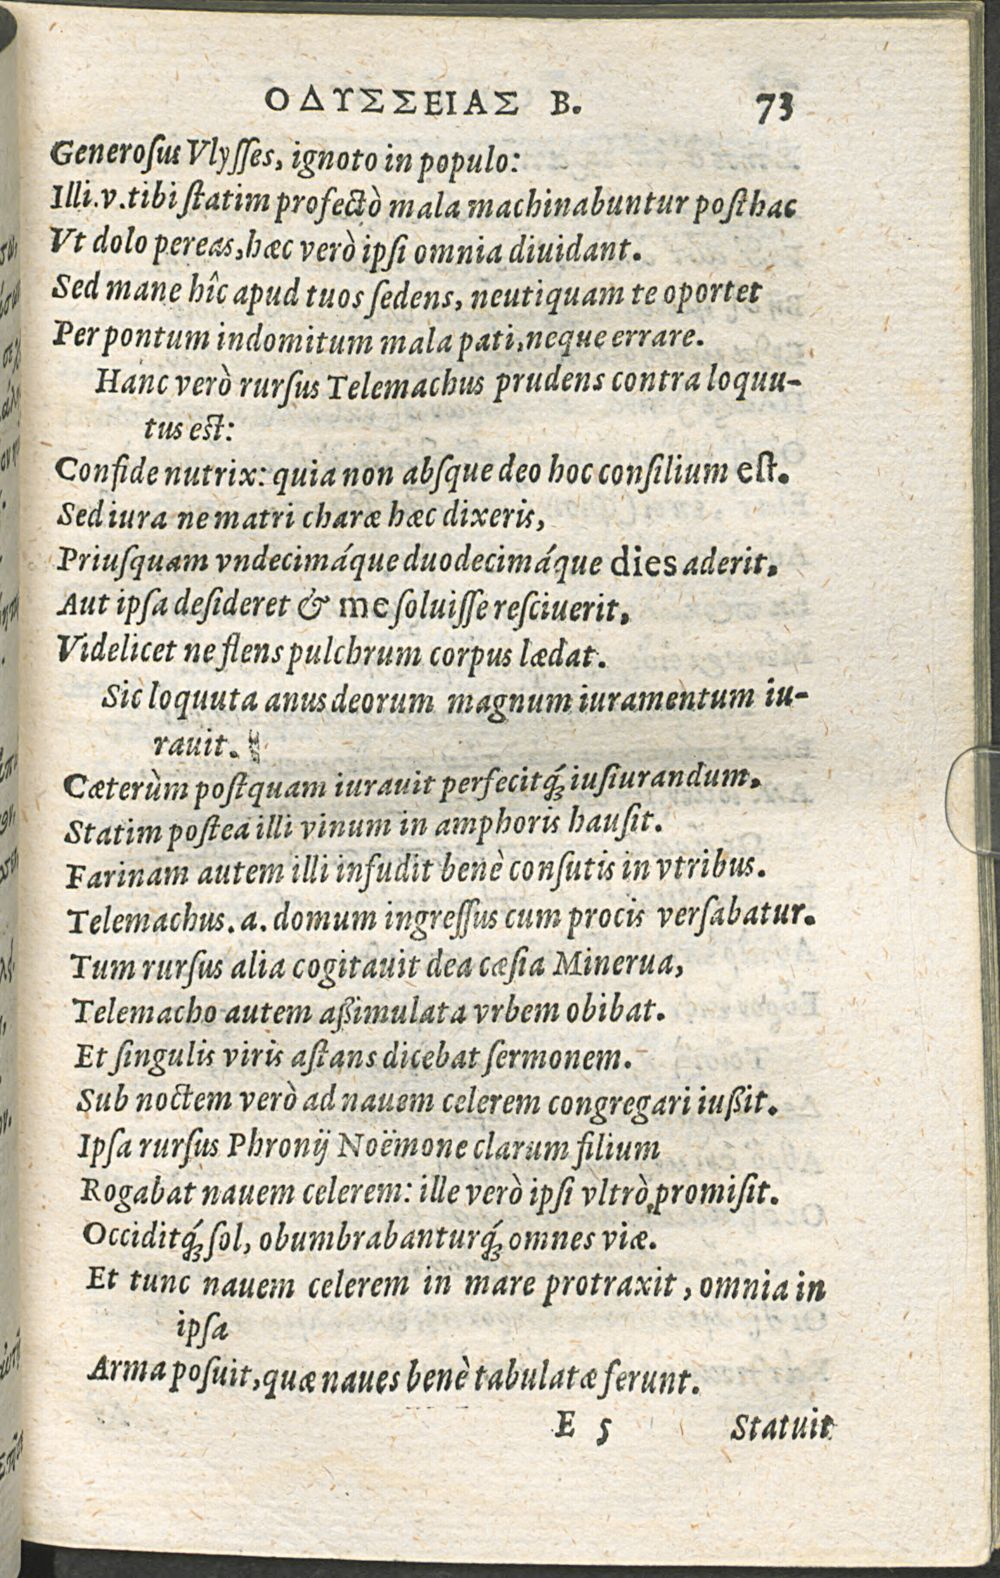 ΟΔΥΣΣΕΙΑΣ Β. 73
Generoſus Vlyſſes, ignoto in populo:
Illi.v.tibi ſtatim profectò mala machinabuntur poſthac
Vt dolo pereas, hæc verò ipſi omnia diuidant.
Sed mane hîc apud tuos ſedens, neutiquam te oportet
Per pontum indomitum mala pati, neque errare.
Hanc verò rurſus Telemachus prudens contra loquu-
tus eſt:
Confide nutrix: quia non abſque deo hoc conſilium eſt.
Sed iura ne matri charæ hæc dixeris,
Priuſquam vndecimáque duodecimáque dies aderit,
Aut ipſa deſideret & me ſoluiſſe reſciuerit,
Videlicet ne flens pulchrum corpus lædat.
Sic loquuta anus deorum magnum iuramentum iu-
rauit.
Cæterùm poſtquam iurauit perfecitq́; iuſiurandum,
Statim poſtea illi vinum in amphoris hauſit.
Farinam autem illi infudit benè conſutis in vtribus.
Telemachus.a. domum ingreſſus cum procis verſabatur.
Tum rurſus alia cogitauit dea cæſia Minerua,
Telemacho autem aßimulata vrbem obibat.
Et ſingulis viris aſtans dicebat ſermonem.
Sub noctem verò ad nauem celerem congregari iußit.
Ipſa rurſus Phronij Noëmone clarum filium
Rogabat nauem celerem: ille verò ipſi vltrò promiſit.
Occiditq́; ſol, obumbrabanturq́; omnes viæ.
Et tunc nauem celerem in mare protraxit, omnia in
ipſa
Arma poſuit, quæ naues benè tabulatæ ferunt.
E 5 Statuit